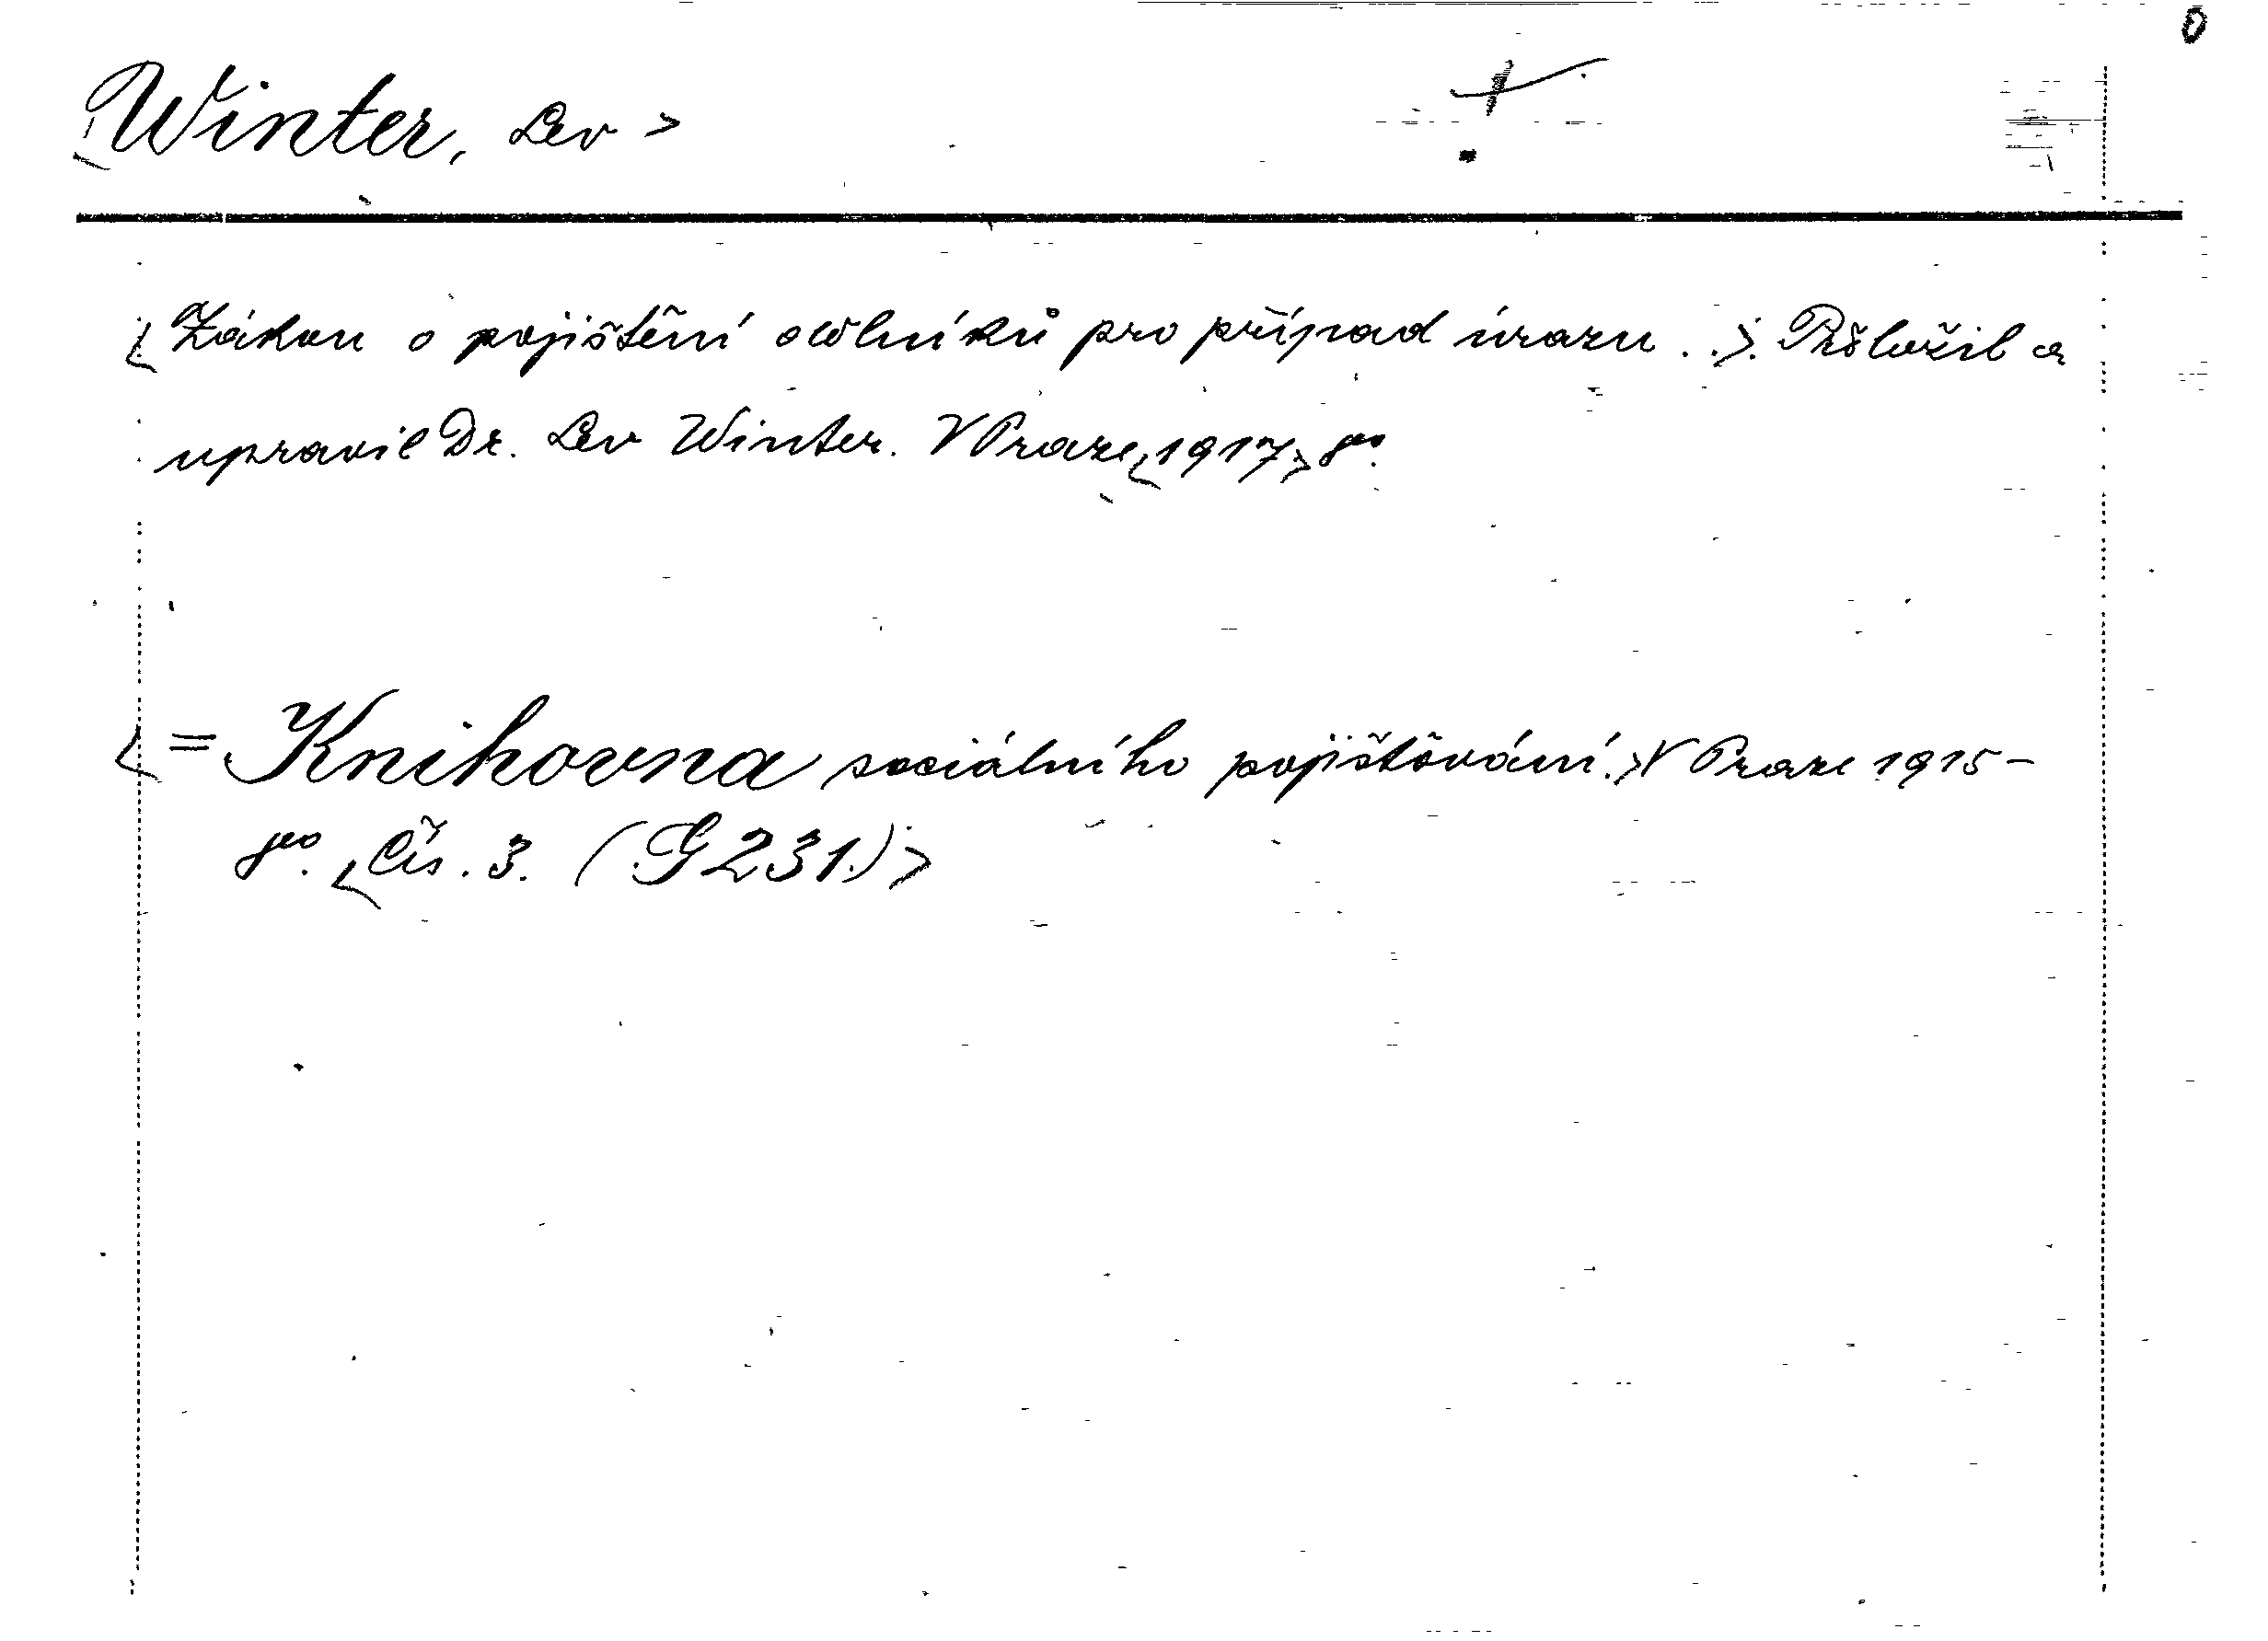 <Winter, Lev>
<Zákon o pojištění dělníků pro případ úrazu . .>. Přeložil a
upravil Dr. Lev Winter. V Praze <1917> 8º.
<= Knihovna sociálního pojišťování.> V Praze 1915 -
8º. <Čís. 3. (G 231.)>